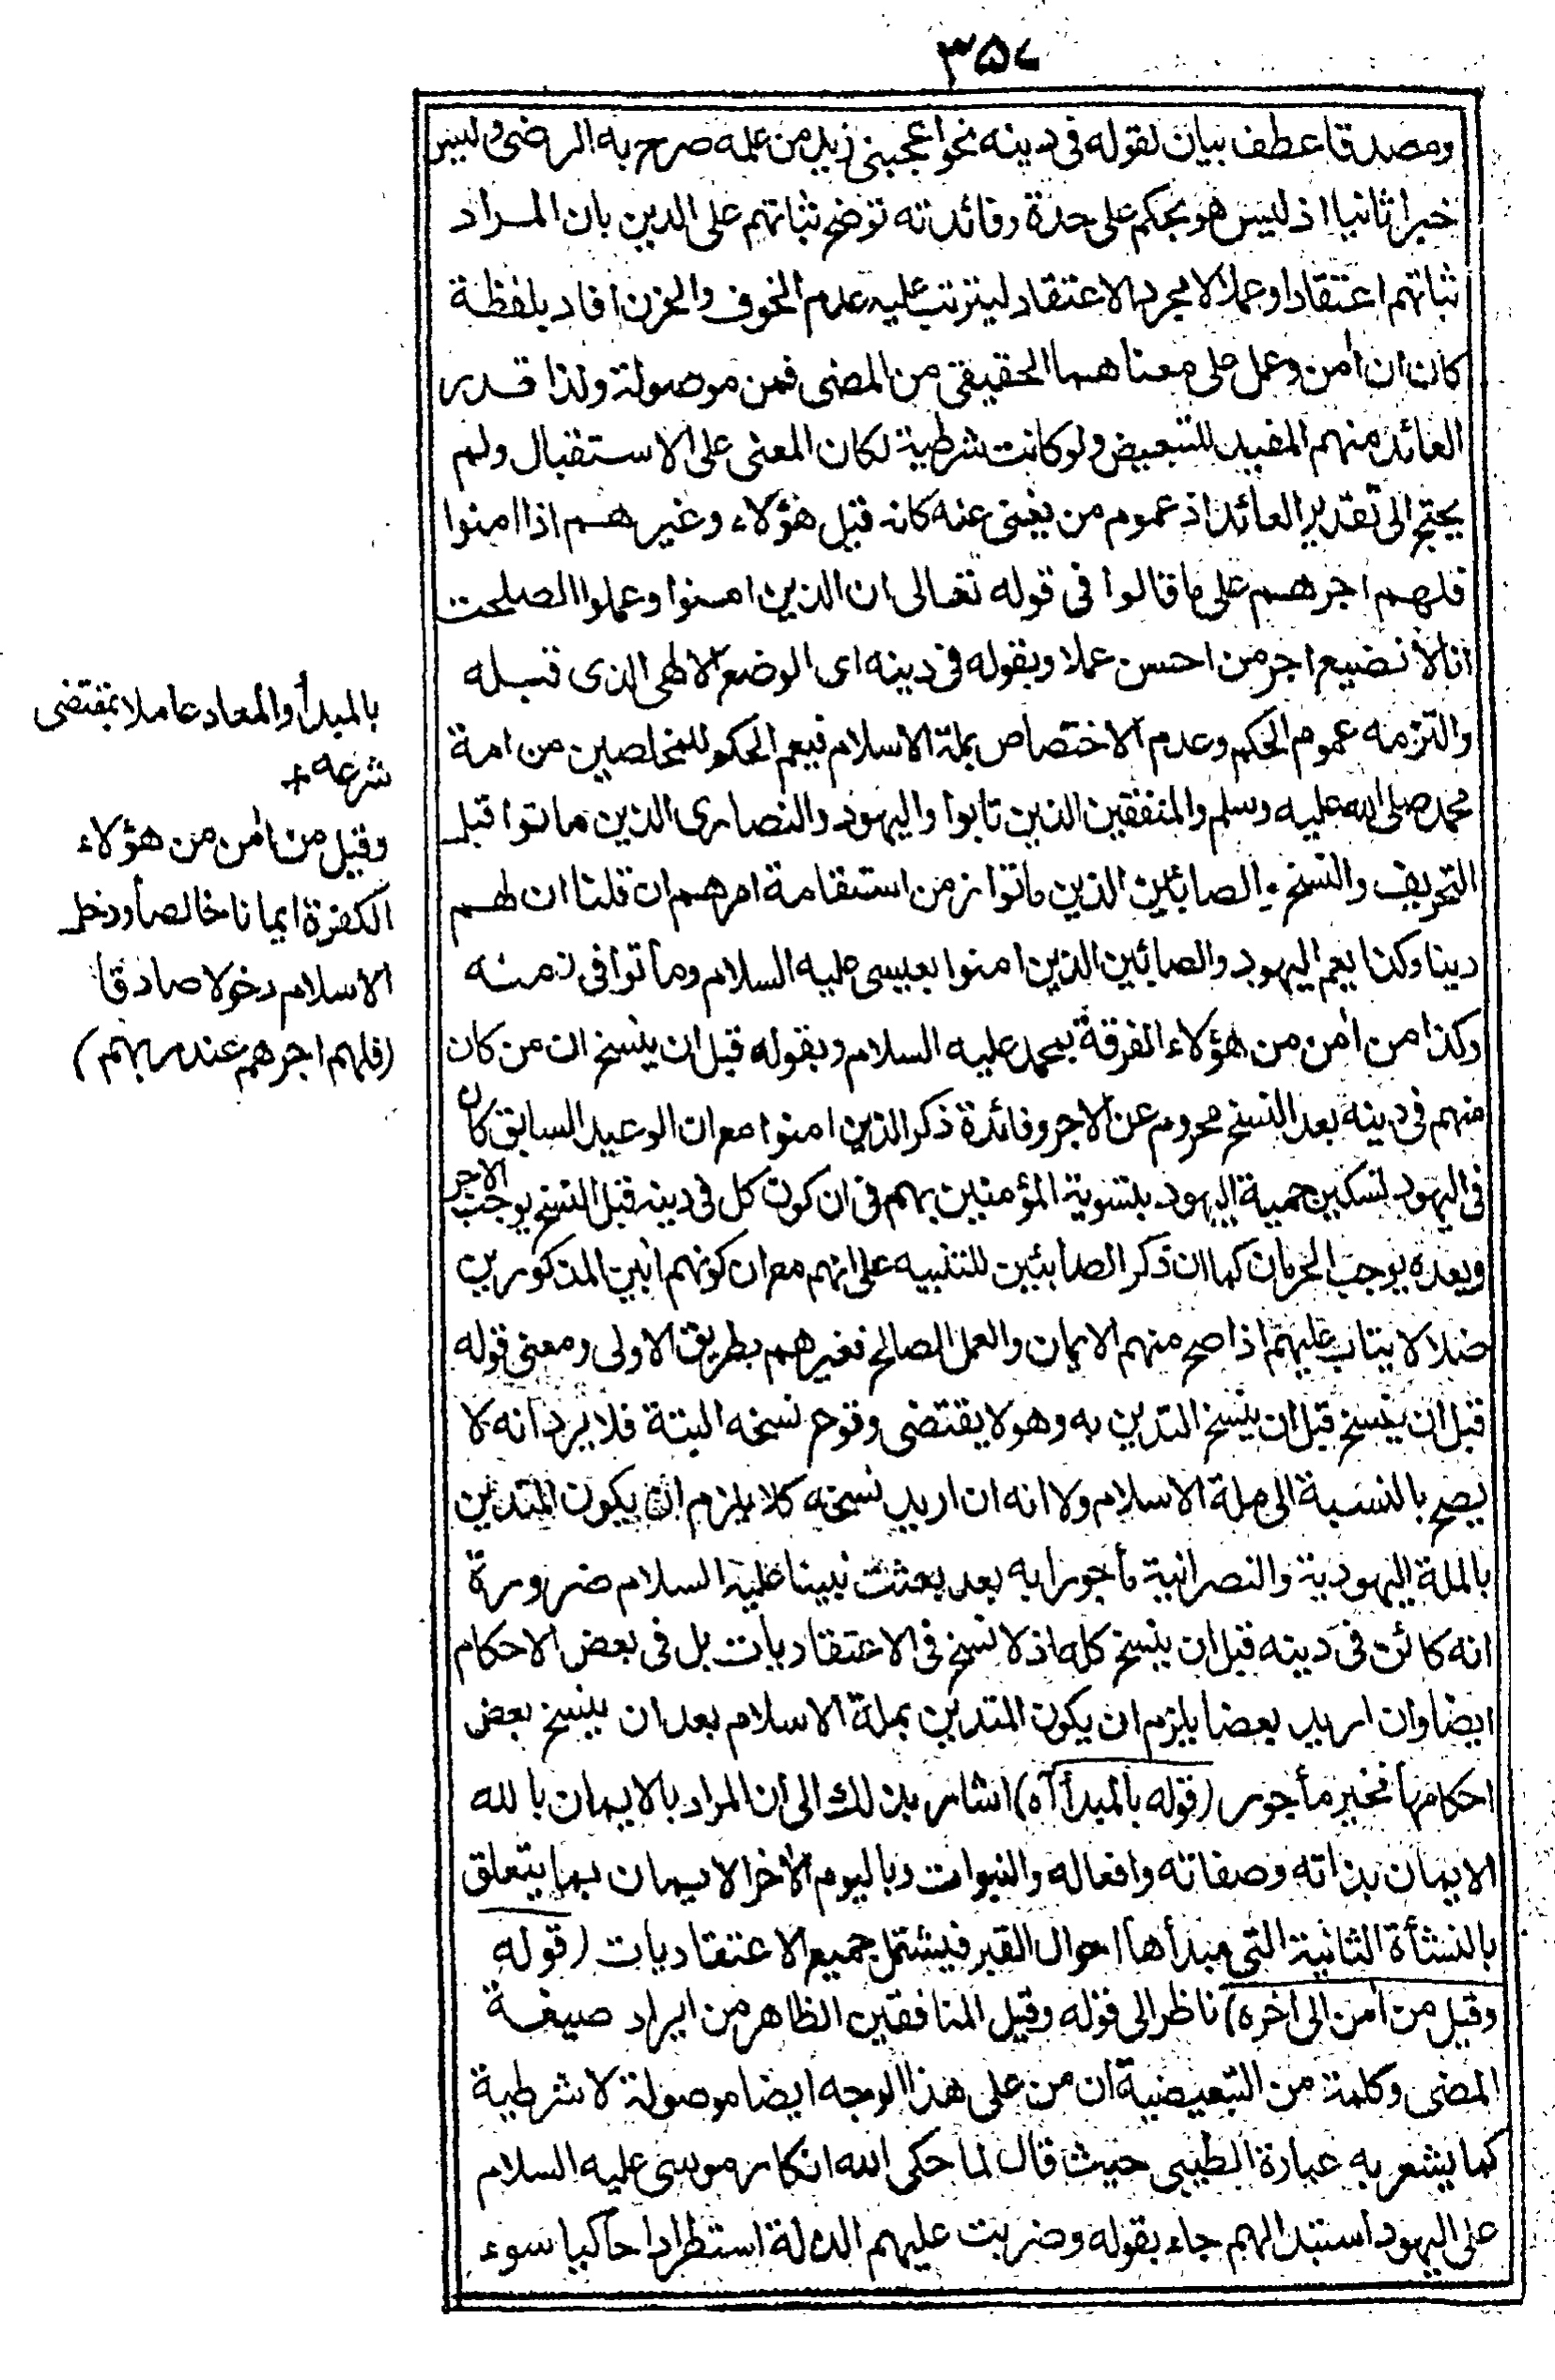 ٣٥٧
ومصدقا عطف بيان لقوله فى دينه نحو اعجبنى زيد من علمه صرح به الرضى وليس
خبرا ثانيا اذ ليس هو بحكم على حدة وفائدته توضيح ثباتهم على الدين بان المراد
ثباتهم اعتقادا وعملا لا مجرد الاعتقاد ليترتب عليه عدم الخوف والحزن افاد بلفظة
كان ان اٰمن وعمل على معناهما الحقيقى من المضى فمن موصولة ولذا قدر
العائد منهم المفيد للتبعيض ولو كانت شرطية لكان المعنى على الاستقبال ولم
يحتج الى تقدير العائد اذ عموم من يغنى عنه كانه قيل هؤلاء وغيرهم اذا امنوا
فلهم اجرهم على ما قالوا فى قوله تعالى ان الذين امنوا وعملوا الصلحت
انا لا نضيع اجر من احسن عملا وبقوله فى دينه اى الوضع الالهى الذى قبله
والتزمه عموم الحكم وعدم الاختصاص بملة الاسلام فيعم الحكم للمخلصين من امة
محمد صلى الله عليه وسلم والمنفقين الذين تابوا واليهود والنصارى الذين ماتوا قبل
التحريف والنسخ والصابئين الذين ماتوا زمن استقامة امرهم ان قلنا ان لهم
دينا وكذا يعم اليهود والصابئين الذين امنوا بعيسى عليه السلام وماتوا فى زمنه
وكذا من اٰمن من هؤلاء الفرقة بمحمد عليه السلام وبقوله قبل ان ينسخ ان من كان
منهم فى دينه بعد النسخ محروم عن الاجر وفائدة ذكر الذين امنوا مع ان الوعيد السابق كان
فى اليهود لتسكين حمية اليهود بتسوية المؤمنين بهم فى ان كون كل فى دينه قبل النسخ يوجب الاجر
وبعده يوجب الحرمان كما ان ذكر الصابئين للتنبيه على انهم مع ان كونهم ابين المذكورين
ضلالا يتاب عليهم اذا صح منهم الايمان والعمل الصالح فغيرهم بطريق الاولى ومعنى قوله
قبل ان ينسخ قبل ان ينسخ التدين به وهو لا يقتضى وقوع نسخه البتة فلا يرد انه لا
يصح بالنسبة الى ملة الاسلام ولا انه ان اريد نسخه كلا يلزم ان يكون المتدين
بالملة اليهودية والنصرانية مأجورا به بعد بعثت نبينا عليه السلام ضرورة
انه كائن فى دينه قبل ان ينسخ كله اذ لا نسخ فى الاعتقاديات بل فى بعض الاحكام
ايضا وان اريد بعضا يلزم ان يكون المتدين بملة الاسلام بعد ان ينسخ بعض
احكامها غير مأجور (قوله بالمبدأ آه) اشار بذلك الى ان المراد بالايمان بالله
الايمان بذاته وصفاته وافعاله والنبوات وباليوم الاٰخر الايمان بما يتعلق
بالنشأة الثانية التى مبدأها احوال القبر فيشتمل جميع الاعتقاديات (قوله
وقيل من اٰمن الى اٰخره) ناظر الى قوله وقيل المنافقين الظاهر من ايراد صيغة
المضى وكلمة من التبعيضية ان من على هذا الوجه ايضا موصولة لا شرطية
كما يشعر به عبارة الطيبى حيث قال لما حكى الله انكار موسى عليه السلام
على اليهود استبدالهم جاء بقوله وضربت عليهم الذلة استطرادا حاكيا سوء
بالمبدأ والمعاد عاملا بمقتضى
شرعه +
وقيل من اٰمن من هؤلاء
الكفرة ايمانا خالصا ودخل
الاسلام دخولا صادقا
(فلهم اجرهم عند ربهم)